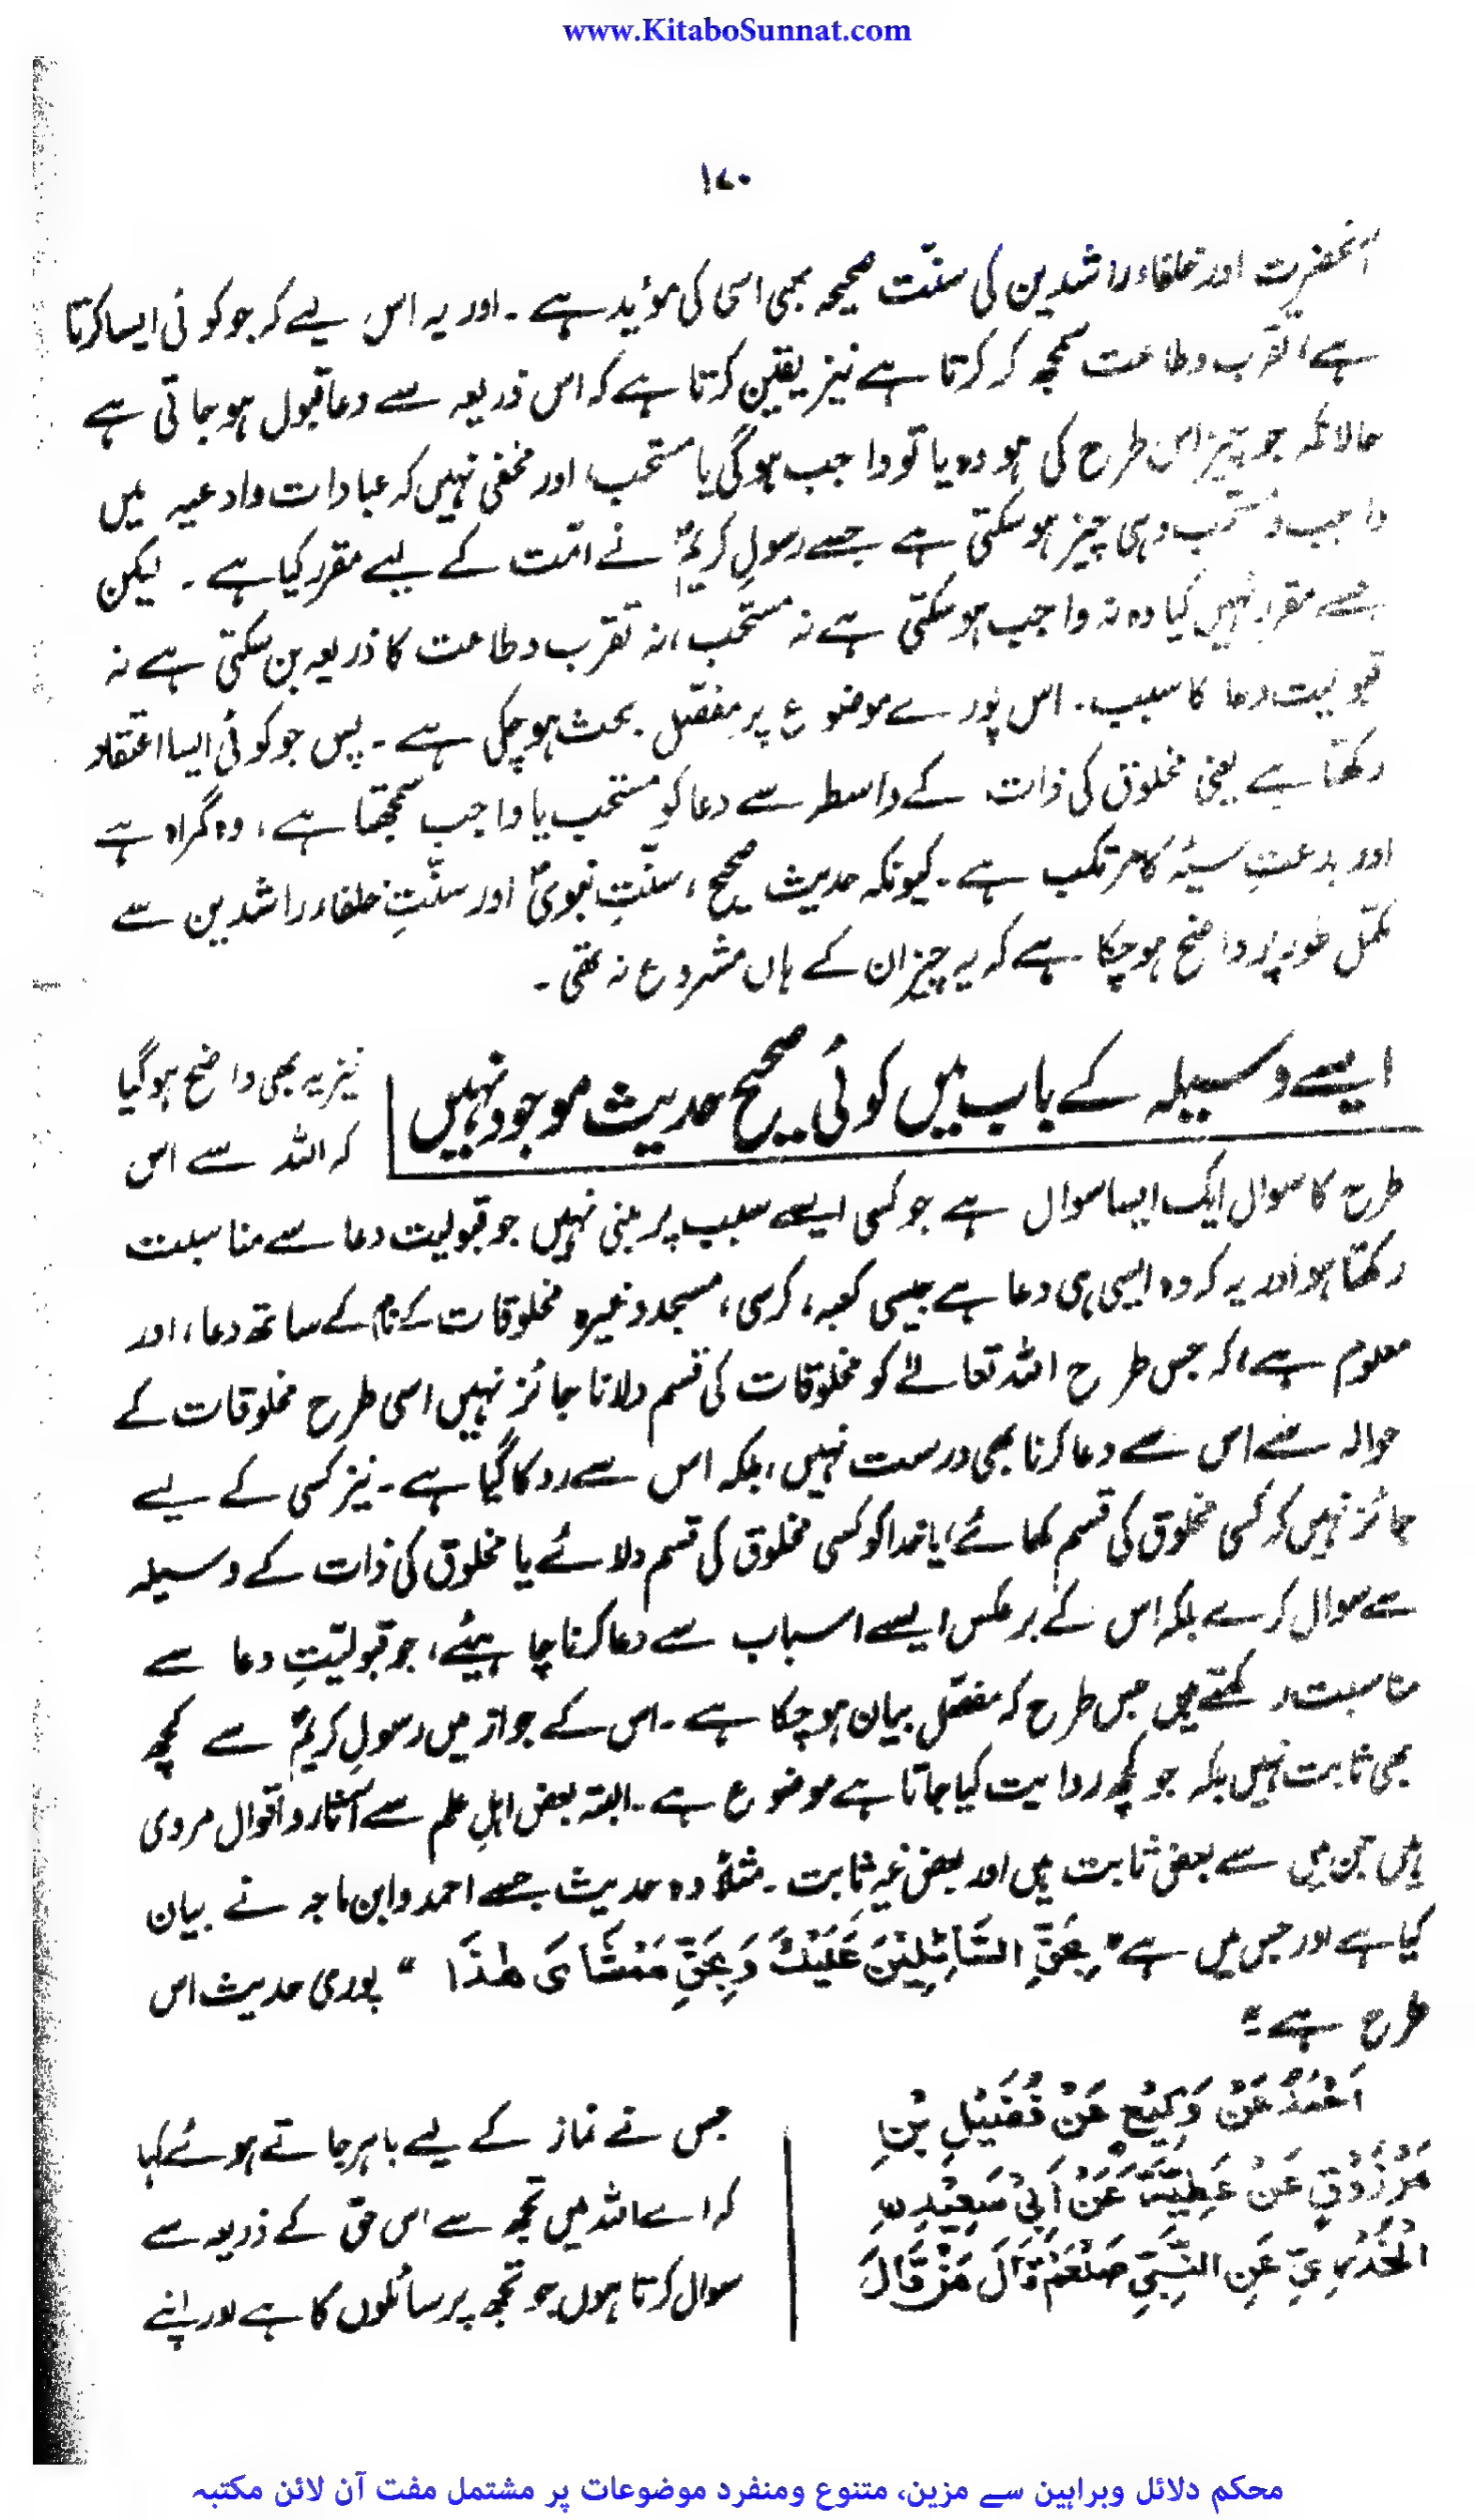 www.KitaboSunnat.com
۱۷۰
آنحضرت اور خلفاء راشدین کی سنّت صحیحہ بھی اسی کی مؤید ہے۔ اور یہ اس لیے کہ جو کوئی ایسا کرتا
ہے، تقرب و طاعت سمجھ کر کرتا ہے نیز یقین کرتا ہے کہ اس ذریعہ سے دعا قبول ہو جاتی ہے
حالانکہ جو چیز اس طرح کی ہو وہ یا تو واجب ہوگی یا مستحب، اور مخفی نہیں کہ عبادات و ادعیہ میں
واجب و مستحب وہی چیز ہو سکتی ہے جسے رسولِ کریمؐ نے امّت کے لیے مقرر کیا ہے۔ لیکن
جسے مقرر نہیں کیا وہ نہ واجب ہو سکتی ہے نہ مستحب، نہ تقرب و طاعت کا ذریعہ بن سکتی ہے نہ
قبولیت دعا کا سبب۔ اس پورے موضوع پر مفصّل بحث ہو چکی ہے۔ پس جو کوئی ایسا اعتقاد
رکھتا ہے یعنی مخلوق کی ذات کے واسطہ سے دعا کو مستحب یا واجب سمجھتا ہے، وہ گمراہ ہے
اور بدعتِ سیئہ کا مرتکب ہے۔ کیونکہ حدیث صحیح، سنّتِ نبویؐ اور سنّتِ خلفاء راشدین سے
مکمّل طور پر واضح ہو چکا ہے کہ یہ چیز ان کے ہاں مشروع نہ تھی۔
ایسے وسیلہ کے باب میں کوئی صحیح حدیث موجود نہیں
نیز یہ بھی واضح ہو گیا
کہ اللہ سے اس
طرح کا سوال ایک ایسا سوال ہے جو کسی ایسے سبب پر مبنی نہیں جو قبولیت دعا سے مناسبت
رکھتا ہو اور یہ کہ وہ ایسی ہی دعا ہے جیسی کعبہ، کرسی، مسجد وغیرہ مخلوقات کے نام کے ساتھ دعا، اور
معلوم ہے کہ جس طرح اللہ تعالےٰ کو مخلوقات کی قسم دلانا جائز نہیں اسی طرح مخلوقات کے
حوالہ سے اس سے دعا کرنا بھی درست نہیں، بلکہ اس سے روکا گیا ہے۔ نیز کسی کے لیے
جائز نہیں کہ کسی مخلوق کی قسم کھائے یا خدا کو کسی مخلوق کی قسم دلائے یا مخلوق کی ذات کے وسیلہ
سے سوال کرے بلکہ اس کے برعکس ایسے اسباب سے دعا کرنا چاہیئے، جو قبولیّتِ دعا سے
مناسبت رکھتے ہیں جس طرح کہ مفصّل بیان ہو چکا ہے۔ اس کے جواز میں رسولِ کریمؐ سے کچھ
بھی ثابت نہیں بلکہ جو کچھ روایت کیا جاتا ہے موضوع ہے۔ البتہ بعض اہلِ علم سے آثار و اقوال مروی
ہیں جن میں سے بعض ثابت ہیں اور بعض غیر ثابت۔ مثلاً وہ حدیث جسے احمد و ابن ماجہ نے بیان
کیا ہے اور جس میں ہے "بِحَقِّ السَّائِلِيْنَ عَلَيْكَ وَبِحَقِّ مَمْشَاىَ هٰذَا" پوری حدیث اس
طرح ہے :۔
اَحْمَدُ عَنْ وَكِيْعٍ عَنْ فُضَيْلِ بْنِ
مَرْزُوْقٍ عَنْ عَطِيَّةَ عَنْ اَبِيْ سَعِيْدِ
الْخُدْرِيِّ عَنِ النَّبِيِّ صَلْعَمْ قَالَ مَنْ قَالَ
جس نے نماز کے لیے باہر جاتے ہوئے کہا
کہ اے اللہ میں تجھ سے اس حق کے ذریعہ سے
سوال کرتا ہوں جو تجھ پر سائلوں کا ہے اور اپنے
محکم دلائل وبراہین سے مزین، متنوع ومنفرد موضوعات پر مشتمل مفت آن لائن مکتبہ